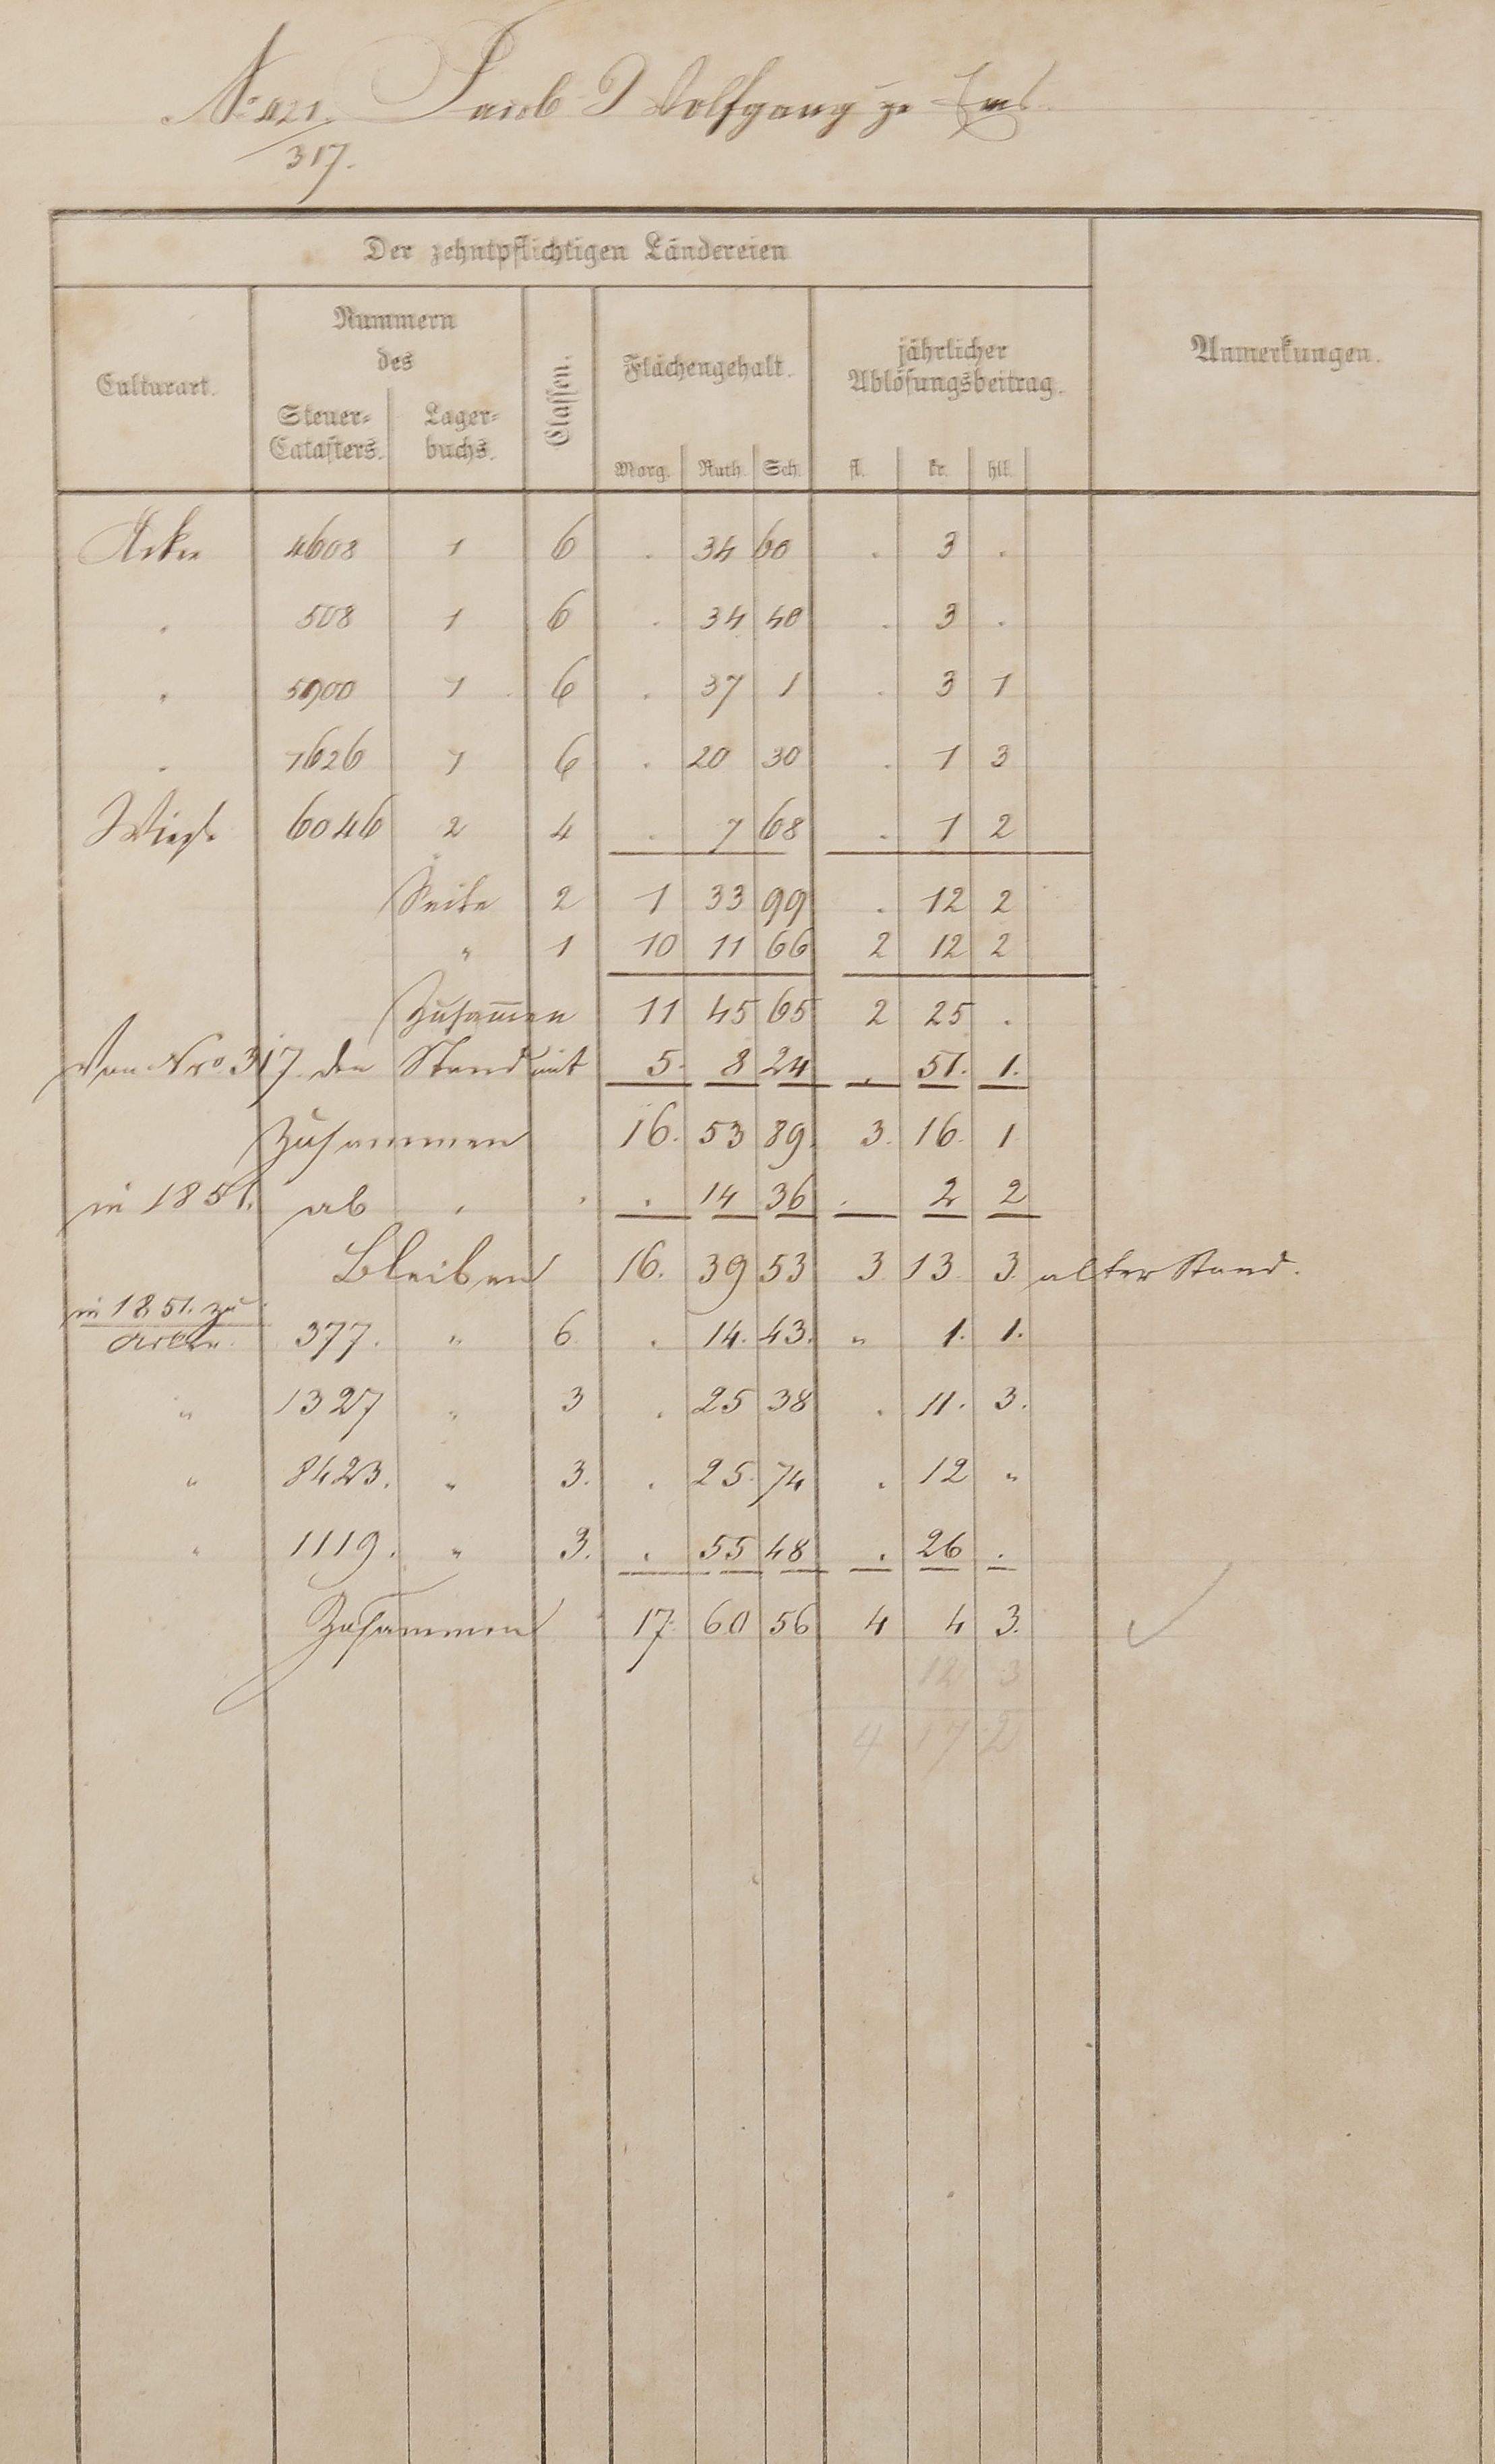 No 421. Jacob Wolfgang zu Ems
317.
Der zehntpflichtigen Ländereien
Culturart. Nummern des Classen. Flächengehalt. jährlicher Ablösungsbeitrag. Anmerkungen.
Steuer-Catasters. Lager-buchs. Morg. Ruth. Sch. fl. kr. hll.
Acker 4608 1 6 . 34 60 . 3 .
" 508 1 6 . 34 40 . 3 .
" 5900 1 6 . 37 1 . 3 1
" 7626 1 6 . 20 30 . 1 3
Wiese 6046 2 4 . 7 68 . 1 2
Seite 2 1 33 99 . 12 2
" 1 10 11 66 2 12 2
Zusam̅en 11 45 65 2 25 .
Von Nro. 317 den Stand mit 5. 8 24 . 51. 1.
Zusammen 16. 53 89. 3. 16. 1
in 1851. ab " " . 14 36 . 2 2
Bleiben 16. 39 53 3 13. 3. alter Stand.
in 1851. zu
Acker. 377. " 6. . 14. 43. " 1. 1.
" 1327 " 3 . 25 38 . 11. 3.
" 8423. " 3. . 25. 74 . 12 "
" 1119. " 3. . 55 48 . 26 .
Zusammen 17. 60 56 4 4 3.
12 3
4 17 2